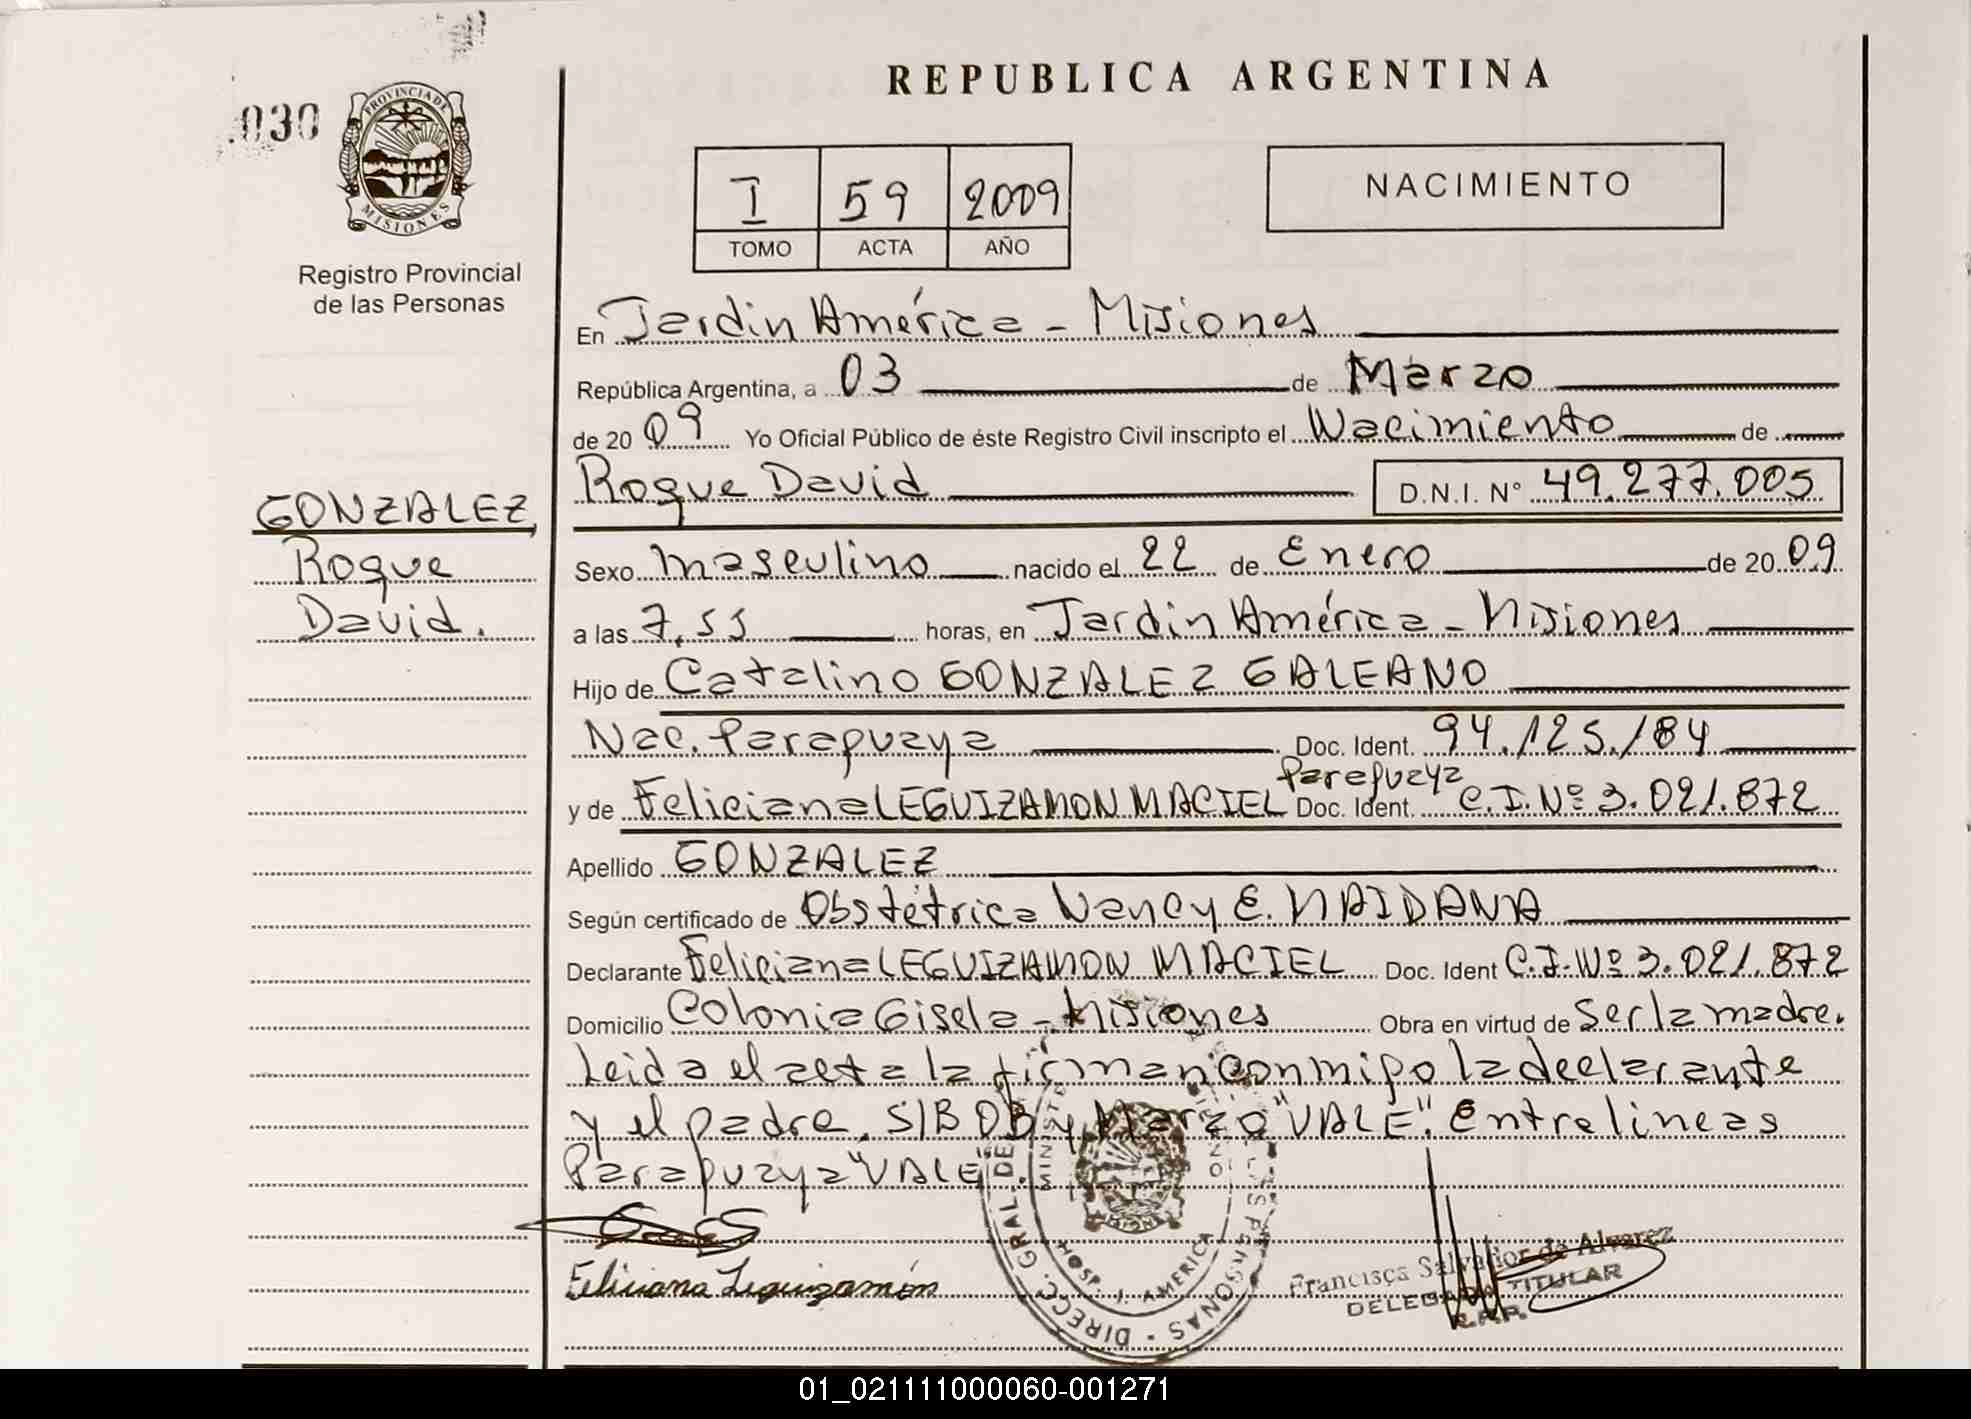 REPUBLICA ARGENTINA
030
PROVINCIA DE
MISIONES
Registro Provincial
de las Personas
I 59 2009
TOMO ACTA AÑO
NACIMIENTO
En Jardin América - Misiones
República Argentina, a 03 de Marzo
de 20 09 Yo Oficial Público de éste Registro Civil inscripto el Nacimiento de
Roque David D.N.I. Nº 49.277.005
GONZALEZ,
Roque
David.
Sexo masculino nacido el 22 de Enero de 20 09
a las 7,55 horas, en Jardin América - Misiones
Hijo de Catalino GONZALEZ GALEANO
Nac. Paraguaya Doc. Ident. 94.125.184
Paraguaya
y de Feliciana LEGUIZAMON MACIEL Doc. Ident. C.I. Nº 3.021.872
Apellido GONZALEZ
Según certificado de Obstétrica Nancy E. MAIDANA
Declarante Feliciana LEGUIZAMON MACIEL Doc. Ident C.I. Nº 3.021.872
Domicilio Colonia Gisela - Misiones Obra en virtud de Ser la madre.
Leida el acta la firman conmigo la declarante
y el padre. S/B 03 y Marzo "VALE". Entrelineas
Paraguaya "VALE".
Feliciana Leguizamón
DIRECC. GRAL DE PERSONAS
HOSP. J. AMERICA
Francisca Salvador de Alvarez
DELEGADA TITULAR
R.P.P.
01_021111000060-001271